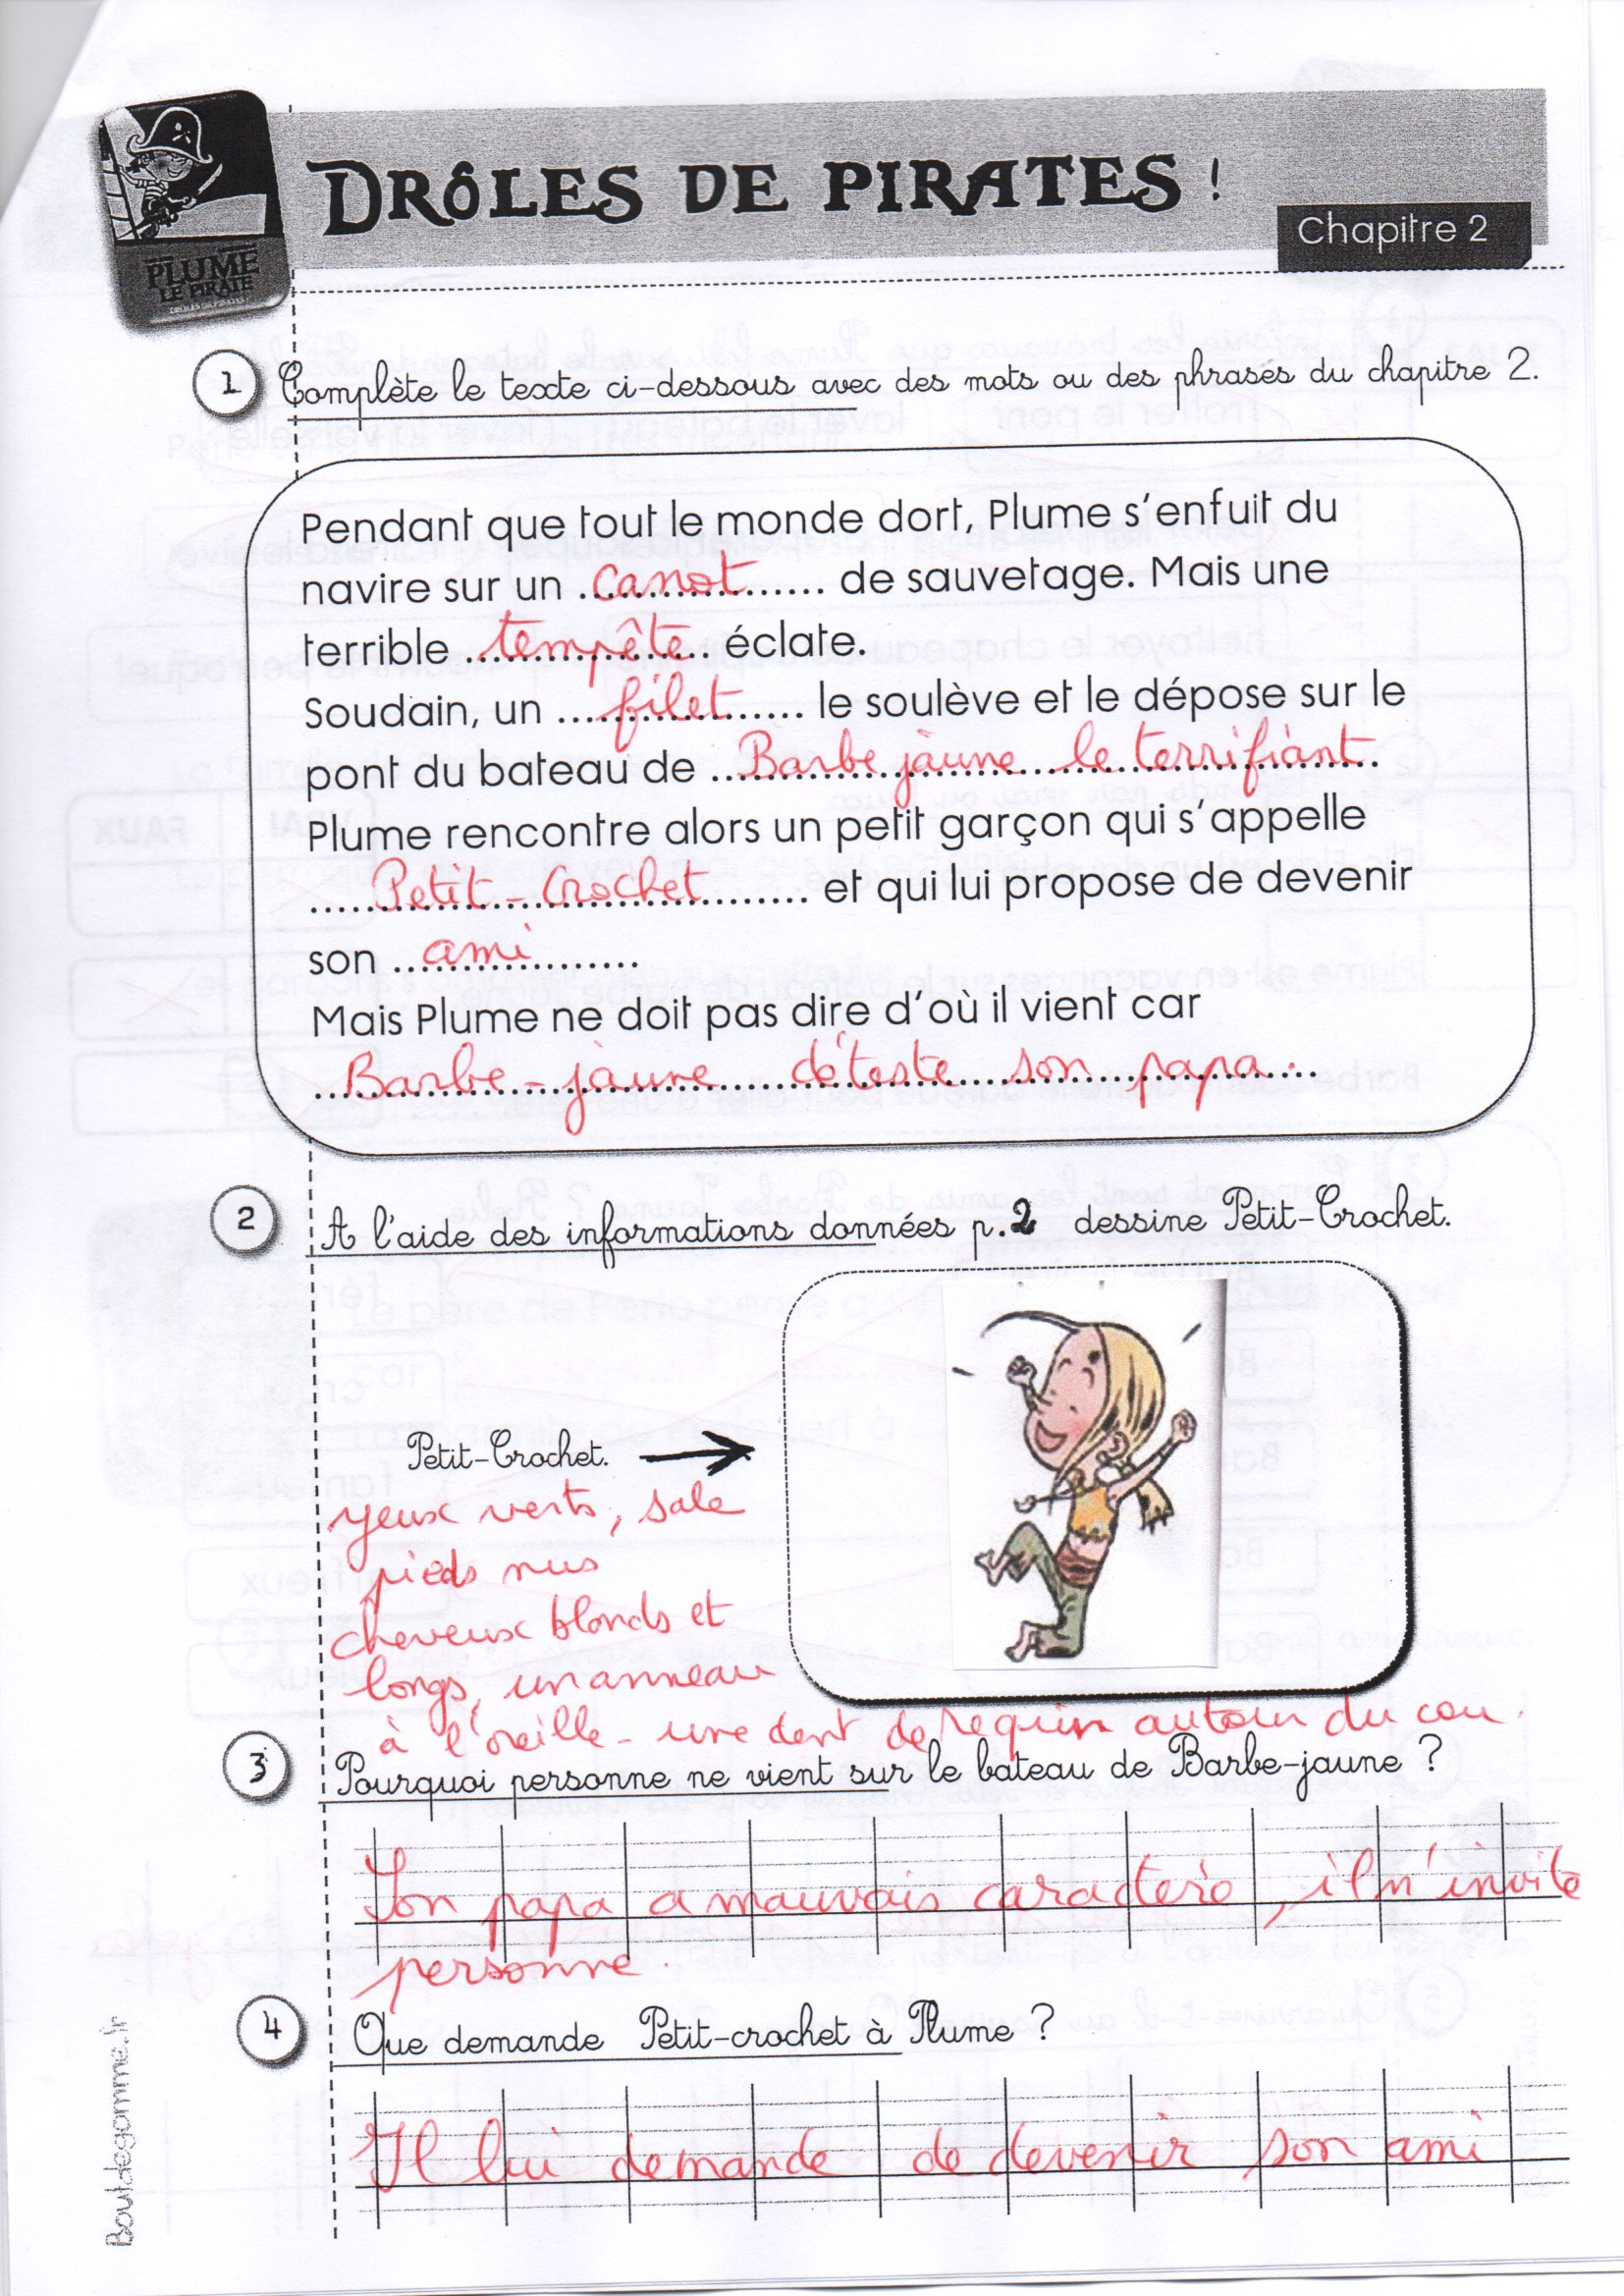 PLUME
LE PIRATE
DRÔLES DE PIRATES !
Chapitre 2
1 Complète le texte ci-dessous avec des mots ou des phrases du chapitre 2.
Pendant que tout le monde dort, Plume s'enfuit du
navire sur un canot de sauvetage. Mais une
terrible tempête éclate.
Soudain, un filet le soulève et le dépose sur le
pont du bateau de Barbe jaune le terrifiant.
Plume rencontre alors un petit garçon qui s'appelle
Petit-Crochet et qui lui propose de devenir
son ami
Mais Plume ne doit pas dire d'où il vient car
Barbe-jaune déteste son papa.
2 A l'aide des informations données p.2 dessine Petit-Crochet.
Petit-Crochet.
yeux verts, sale
pieds nus
cheveux blonds et
longs, un anneau
à l'oreille - une dent de requin autour du cou.
3 Pourquoi personne ne vient sur le bateau de Barbe-jaune ?
Son papa a mauvais caractère, il n'invite
personne.
4 Que demande Petit-crochet à Plume ?
Il lui demande de devenir son ami
Boutdegomme.fr